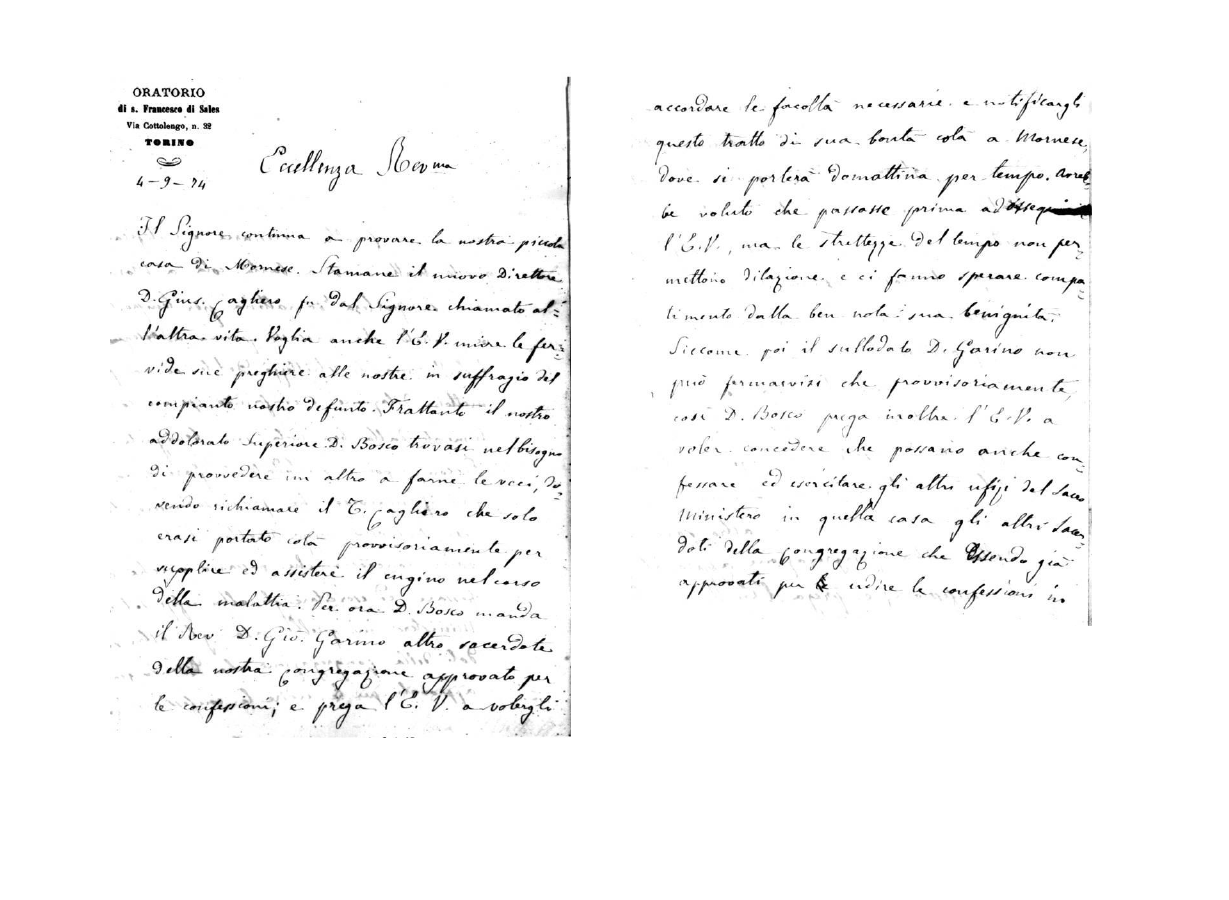 ORATORIO
di s. Francesco di Sales
Via Cottolengo, n. 32
TORINO
4-9-74
Eccellenza Rev ma
Il Signore continua a provare la nostra piccola
casa di Mornese. Stamane il nuovo Direttore
D. Gius. Cagliero fu dal Signore chiamato al=
l'altra vita. Voglia anche l'E. V. unire le fer=
vide sue preghiere alle nostre in suffragio del
compianto nostro defunto. Frattanto il nostro
addolorato Superiore D. Bosco trovasi nel bisogno
di provvedere un altro a farne le veci, do=
vendo richiamare il T. Cagliero che solo
erasi portato colà provvisoriamente per
supplire ed assistere il cugino nel corso
della malattia. Per ora D. Bosco manda
il Rev D. Gio. Garino altro sacerdote
della nostra congregazione approvato per
le confessioni; e prega l'E. V. a volergli
accordare le facoltà necessarie e notificargli
questo tratto di sua bontà colà a Mornese,
dove si porterà domattina per tempo. Avreb=
be voluto che passasse prima ad
l'E. V., ma le strettezze del tempo non per=
mettono dilazione e ci fanno sperare compa=
timento dalla ben nota sua benignità.
Siccome poi il sullodato D. Garino non
può fermarvisi che provvisoriamente,
così D. Bosco prega inoltre l'E. V. a
voler concedere che possano anche con=
fessare ed esercitare gli altri ufizi del Sacro
Ministero in quella casa gli altri Sacer=
doti della Congregazione che essendo già
approvati per udire le confessioni in